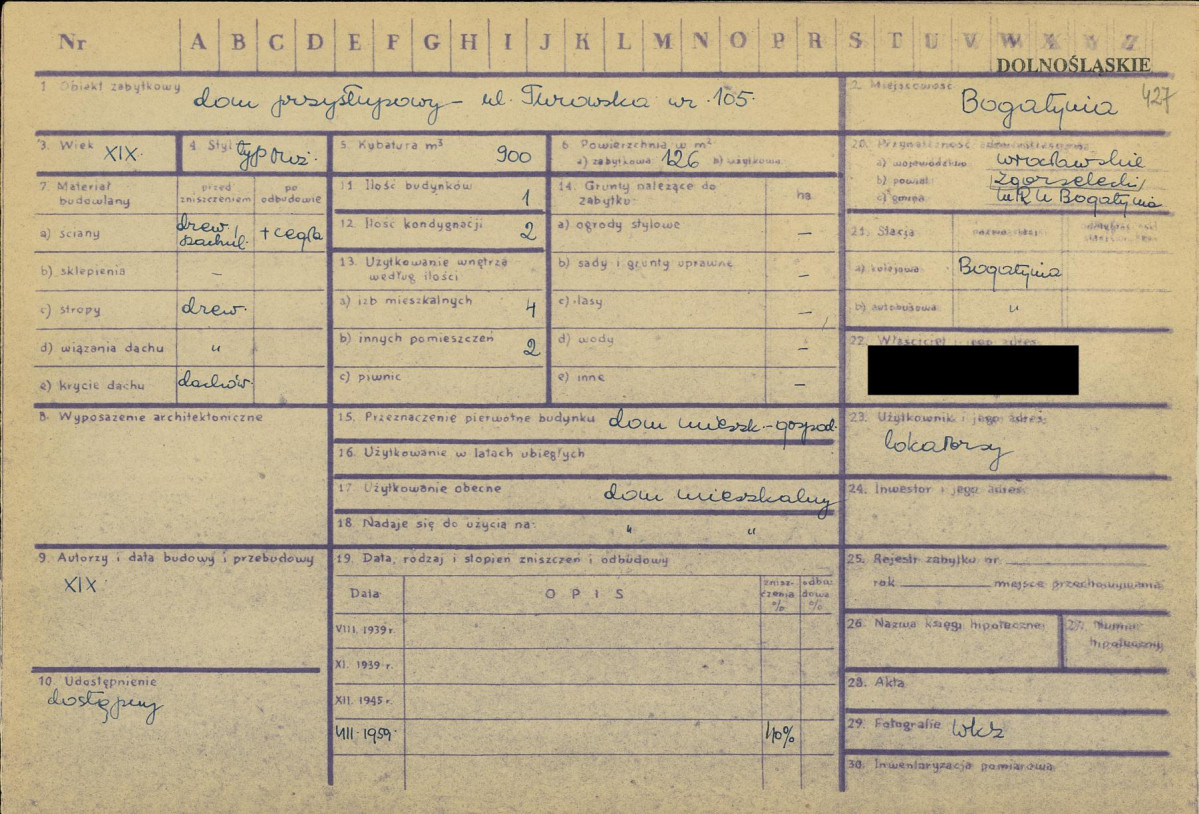 Nr A B C D E F G H I J K L M N O P R S T U V W X Y Z
DOLNOŚLĄSKIE
1 Obiekt zabytkowy dom przysłupowy - ul. Turowska nr. 105.
2. Miejscowość Bogatynia 427
3. Wiek XIX.
4. Styl
5. Kubatura m³ 900
6 Powierzchnia w m²
a) zabytkowa 126 b) użytkowa
7. Materiał budowlany
przed zniszczeniem
po odbudowie
a) ściany drew, szachul. + cegła
b) sklepienia –
c) stropy drew.
d) wiązania dachu "
e) krycie dachu dachów.
8. Wyposażenie architektoniczne
9. Autorzy i data budowy i przebudowy
XIX
10. Udostępnienie
dostępny
11 Ilość budynków 1
12. Ilość kondygnacji 2
13. Użytkowanie wnętrza według ilości
a) izb mieszkalnych 4
b) innych pomieszczeń 2
c) piwnic
14. Grunty należące do zabytku: ha
a) ogrody stylowe –
b) sady i grunty uprawne –
c) lasy –
d) wody –
e) inne –
15. Przeznaczenie pierwotne budynku dom mieszk.-gospod.
16. Użytkowanie w latach ubiegłych
17. Użytkowanie obecne dom mieszkalny
18. Nadaje się do użycia na: " "
19. Data, rodzaj i stopień zniszczeń i odbudowy
Data OPIS zniszczenia % odbudowa %
VIII. 1939 r.
XI. 1939 r.
XII. 1945 r.
VIII. 1959. 40%
20. Przynależność administracyjna
a) województwo wrocławskie
b) powiat zgorzelecki
c) gmina Bogatynia
21. Stacja nazwa stacji
a) kolejowa Bogatynia
b) autobusowa "
22. Właściciel i jego adres
23. Użytkownik i jego adres
lokatorzy
24. Inwestor i jego adres
25. Rejestr zabytku nr
rok miejsce przechowywania
26. Nazwa księgi hipotecznej
27. Numer hipoteczny
28. Akta
29. Fotografie WKZ
30. Inwentaryzacja pomiarowa